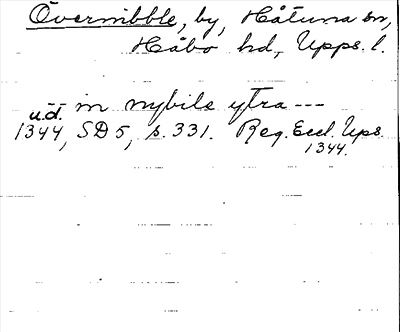 Övernibble, by, Håtuna sn,
Håbo hd, Upps. l.
in nybile ytra ---
u.d.
1344, SD 5, s. 331. Reg. Eccl. Ups.
1344.